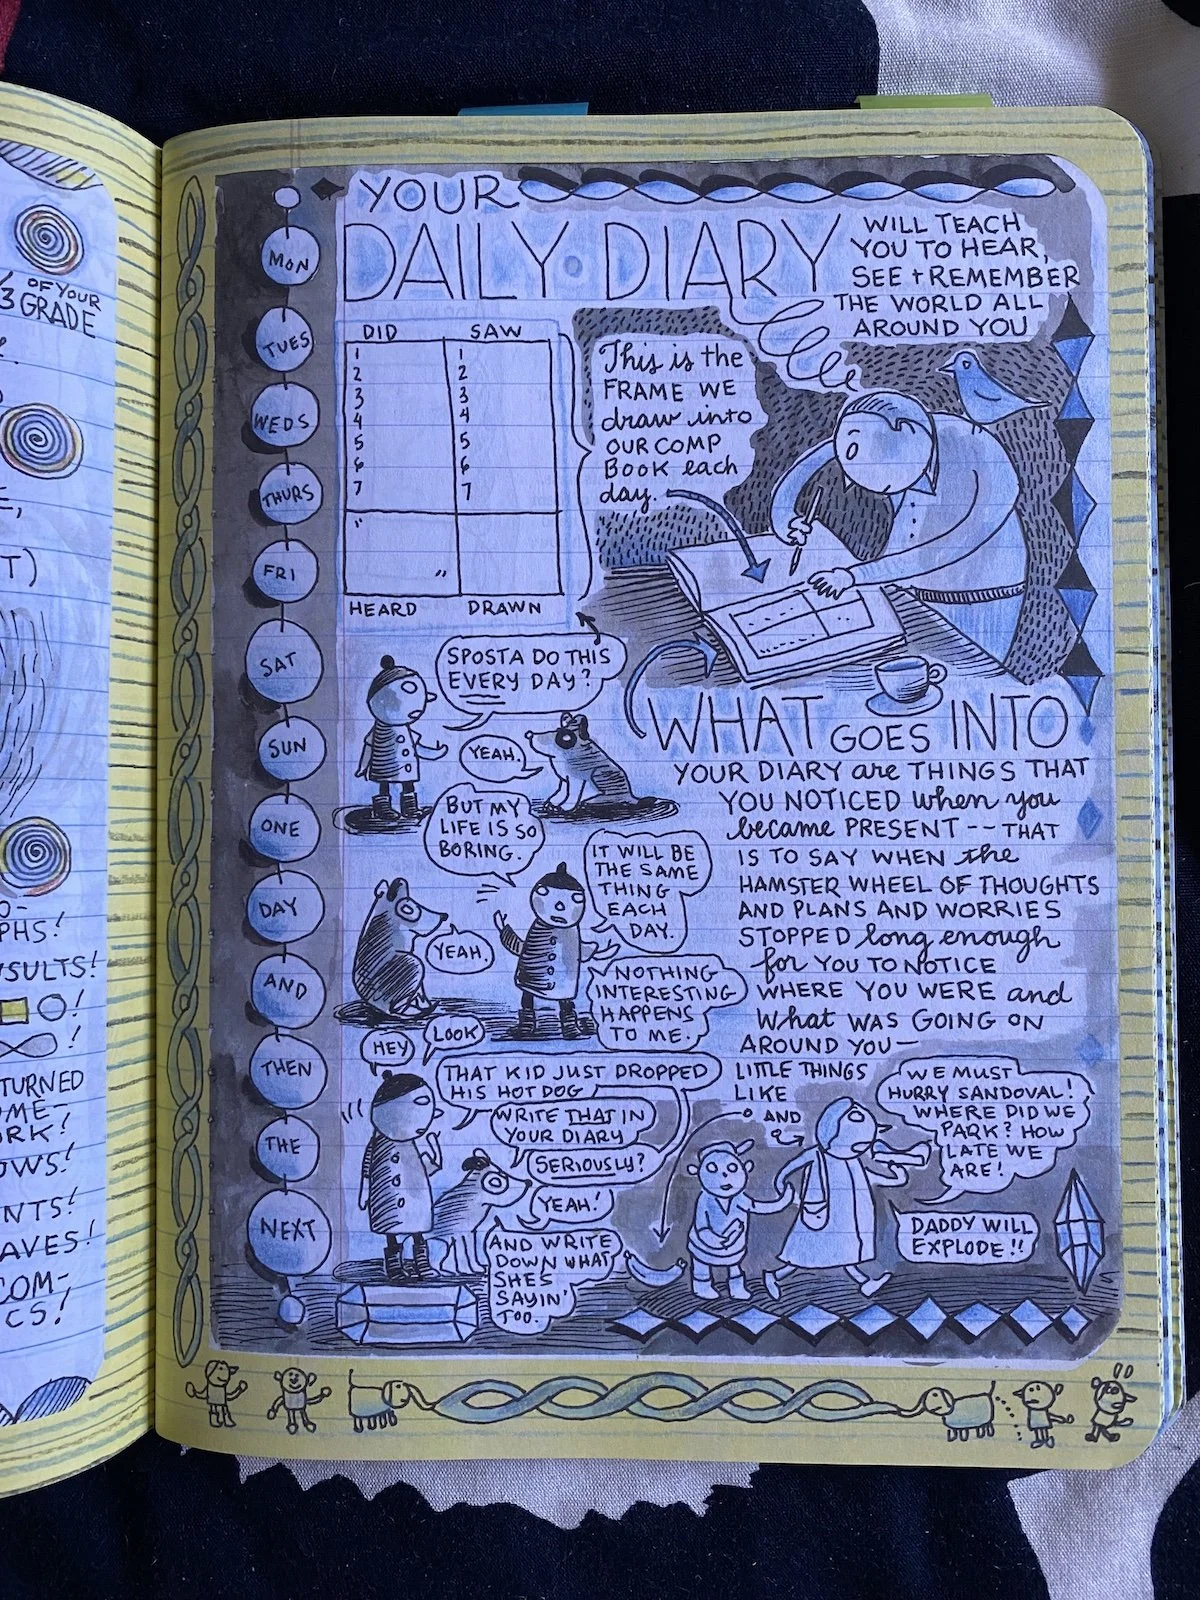 OF YOUR
GRADE
T)
PHS!
TURNED
OWS!
NTS!
AVES!
COM-
CS!
MON
TUES
WEDS
THURS
FRI
SAT
SUN
ONE
DAY
AND
THEN
THE
NEXT
YOUR
DAILY DIARY
WILL TEACH
YOU TO HEAR,
SEE + REMEMBER
THE WORLD ALL
AROUND YOU
DID SAW
1 1
2 2
3 3
4 4
5 5
6 6
7 7
"
"
HEARD DRAWN
This is the
FRAME WE
draw into
OUR COMP
BOOK each
day.
SPOSTA DO THIS
EVERY DAY?
YEAH.
BUT MY
LIFE IS SO
BORING.
YEAH.
IT WILL BE
THE SAME
THING
EACH
DAY.
NOTHING
INTERESTING
HAPPENS
TO ME.
HEY
LOOK
THAT KID JUST DROPPED
HIS HOT DOG
WRITE THAT IN
YOUR DIARY
SERIOUSLY?
YEAH!
AND WRITE
DOWN WHAT
SHE'S
SAYIN'
TOO.
WHAT GOES INTO
YOUR DIARY are THINGS THAT
YOU NOTICED when you
became PRESENT -- THAT
IS TO SAY WHEN the
HAMSTER WHEEL OF THOUGHTS
AND PLANS AND WORRIES
STOPPED long enough
for YOU TO NOTICE
WHERE YOU WERE and
What WAS GOING ON
AROUND YOU—
LITTLE THINGS
LIKE
AND
WE MUST
HURRY SANDOVAL!
WHERE DID WE
PARK? HOW
LATE WE
ARE!
DADDY WILL
EXPLODE!!